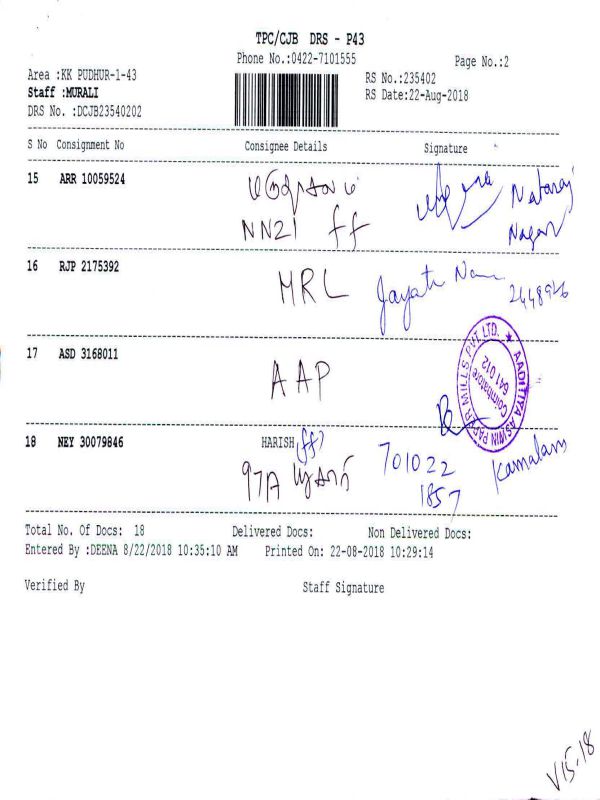 TPC/CJB DRS - P43
Phone No.:0422-7101555
Page No.:2
Area :KK PUDHUR-1-43
RS No.:235402
Staff :MURALI
RS Date:22-Aug-2018
DRS No. :DCJB23540202
S No Consignment No Consignee Details Signature
15 ARR 10059524
Nataraj
NN21 ff
Nagar
16 RJP 2175392
MRL
2448946
17 ASD 3168011
AAP
AADITIYA ASWIN PAPER MILLS PVT. LTD. ★
Coimbatore
641 012
18 NEY 30079846 HARISH (ff)
97A
701022
1857
Kamalam
Total No. Of Docs: 18 Delivered Docs: Non Delivered Docs:
Entered By :DEENA 8/22/2018 10:35:10 AM Printed On: 22-08-2018 10:29:14
Verified By Staff Signature
V15-18